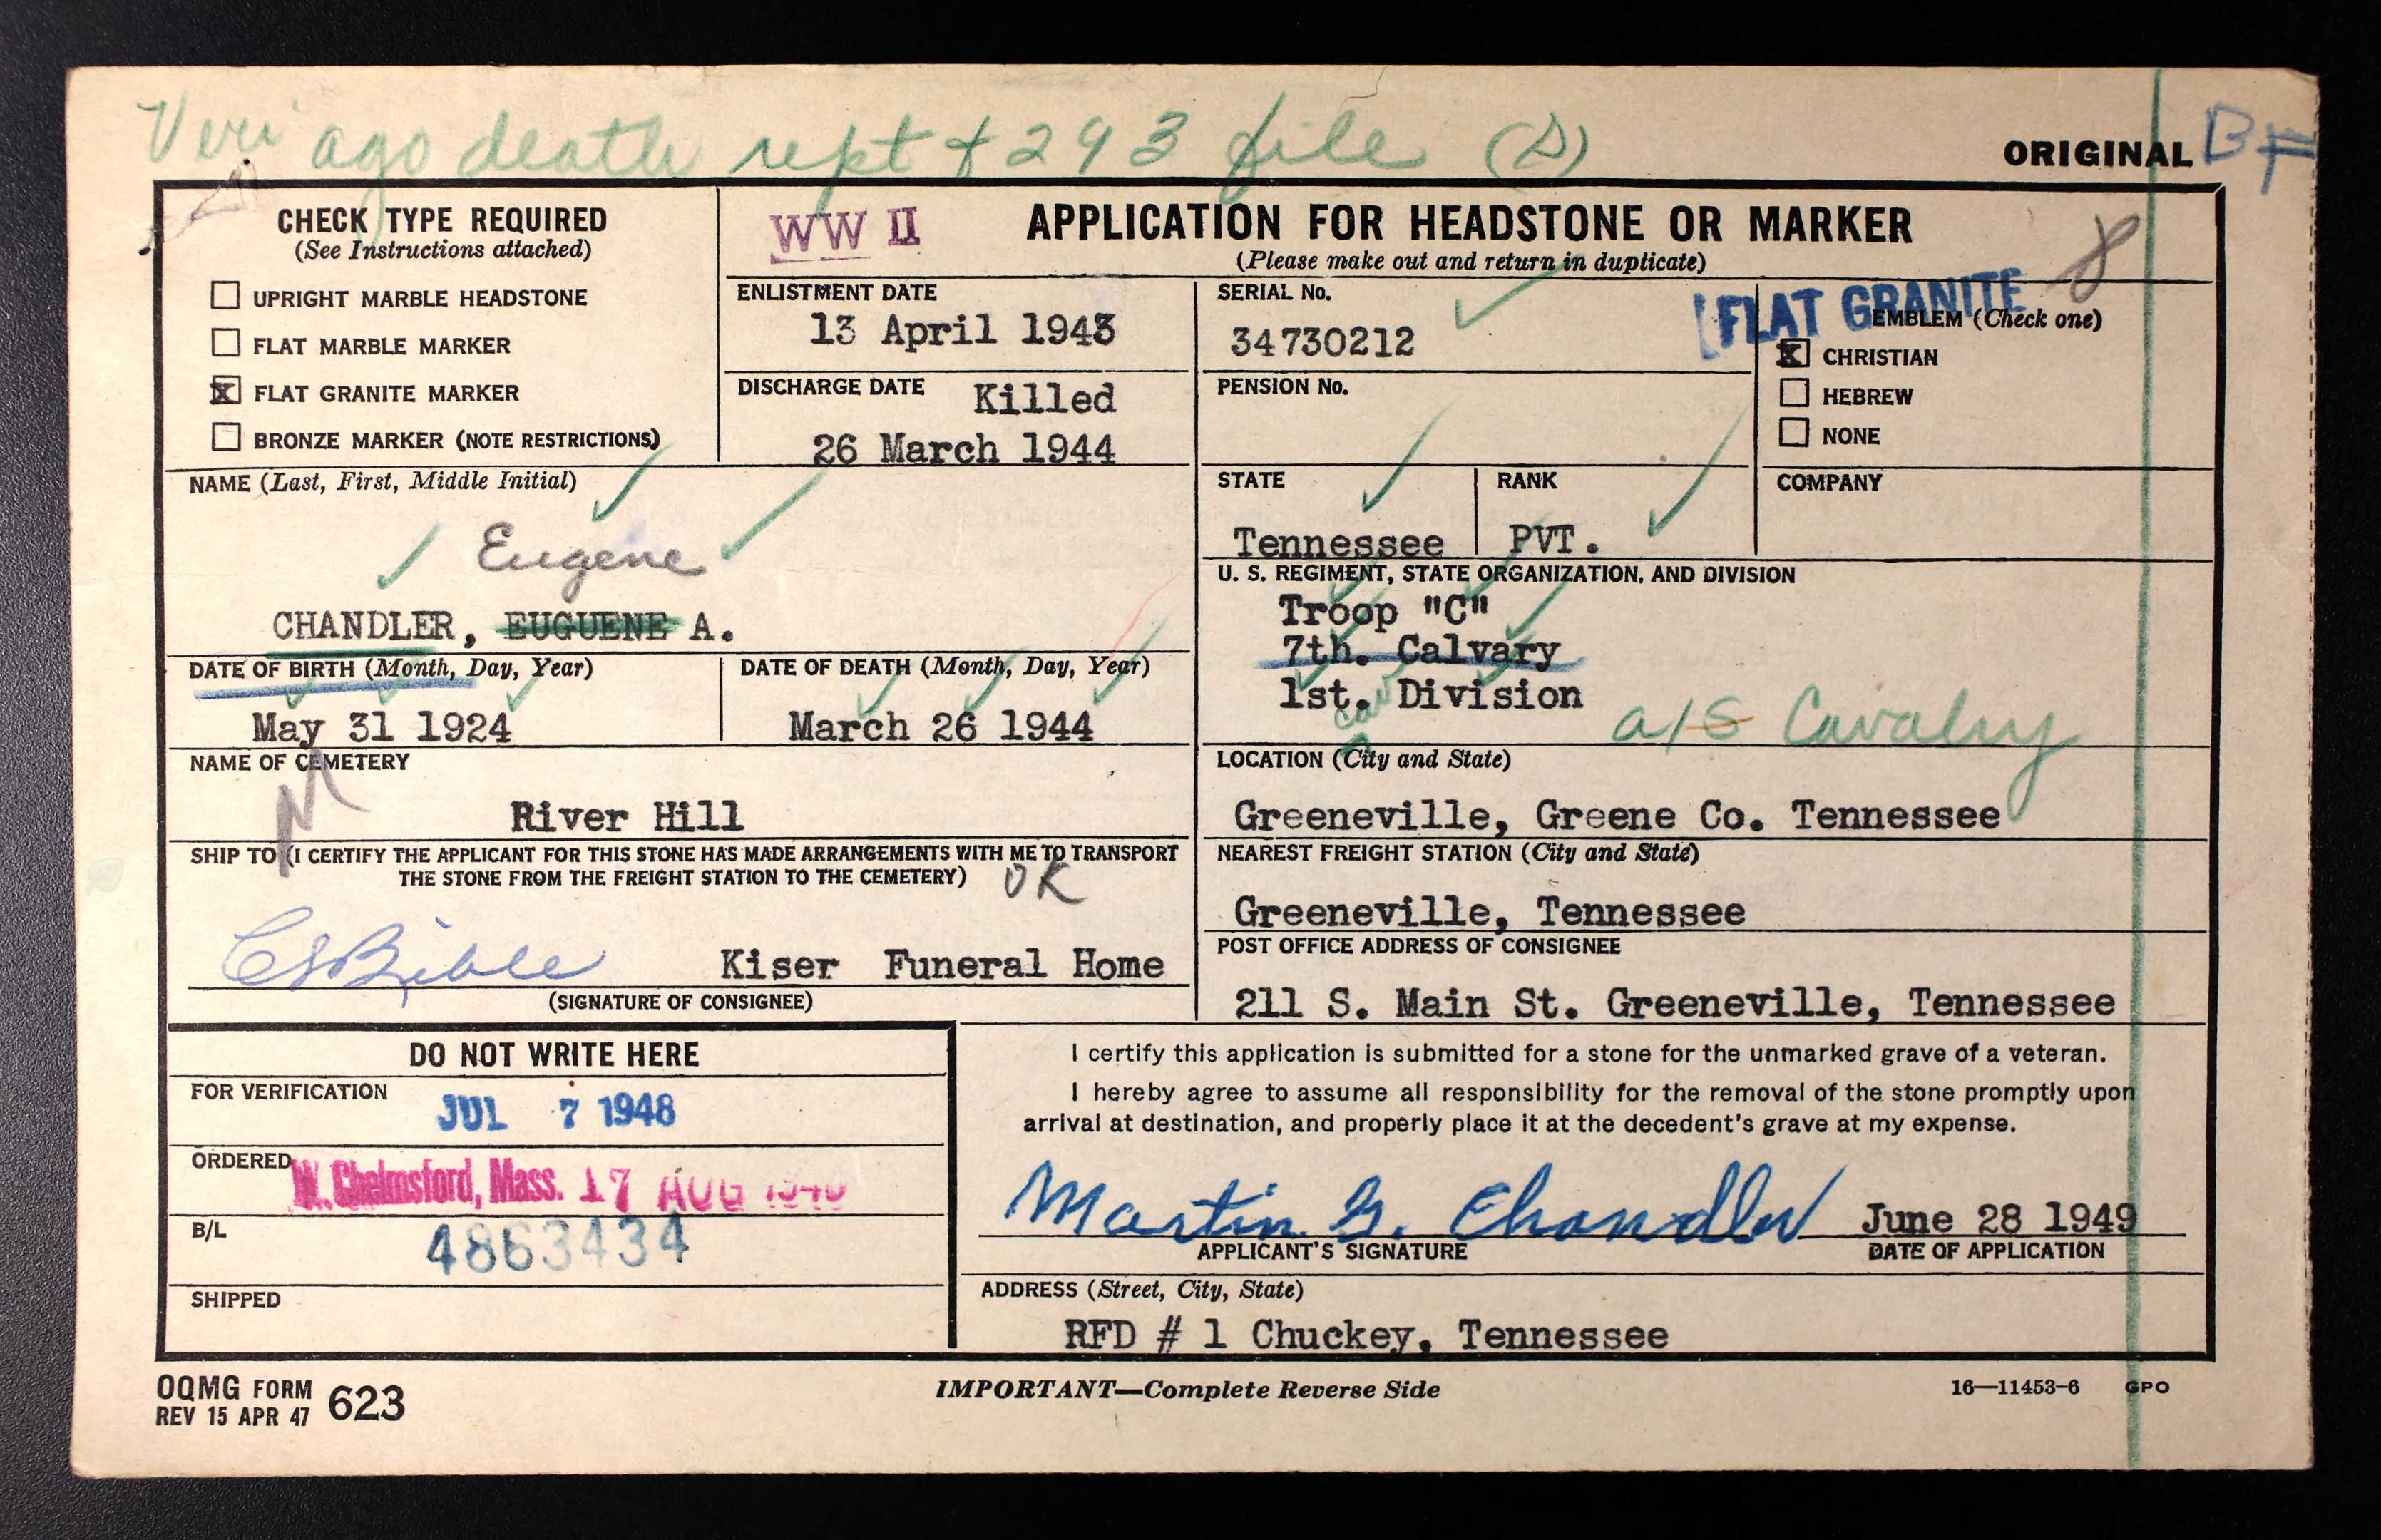 Veri ago death rept + 293 file (S)
ORIGINAL
CHECK TYPE REQUIRED
(See Instructions attached)
☐ UPRIGHT MARBLE HEADSTONE
☐ FLAT MARBLE MARKER
☒ FLAT GRANITE MARKER
☐ BRONZE MARKER (NOTE RESTRICTIONS)
WW II
APPLICATION FOR HEADSTONE OR MARKER
(Please make out and return in duplicate)
8
ENLISTMENT DATE
13 April 1943
DISCHARGE DATE Killed
26 March 1944
SERIAL No.
34730212
PENSION No.
FLAT GRANITE
EMBLEM (Check one)
☒ CHRISTIAN
☐ HEBREW
☐ NONE
NAME (Last, First, Middle Initial)
Eugene
CHANDLER, EUGUENE A.
STATE
Tennessee
RANK
PVT.
COMPANY
U. S. REGIMENT, STATE ORGANIZATION, AND DIVISION
Troop "C"
7th. Calvary
1st. Division
Cav
a/S Cavalry
DATE OF BIRTH (Month, Day, Year)
May 31 1924
DATE OF DEATH (Month, Day, Year)
March 26 1944
NAME OF CEMETERY
River Hill
LOCATION (City and State)
Greeneville, Greene Co. Tennessee
SHIP TO (I CERTIFY THE APPLICANT FOR THIS STONE HAS MADE ARRANGEMENTS WITH ME TO TRANSPORT
THE STONE FROM THE FREIGHT STATION TO THE CEMETERY) OK
CSBible Kiser Funeral Home
(SIGNATURE OF CONSIGNEE)
NEAREST FREIGHT STATION (City and State)
Greeneville, Tennessee
POST OFFICE ADDRESS OF CONSIGNEE
211 S. Main St. Greeneville, Tennessee
DO NOT WRITE HERE
FOR VERIFICATION
JUL 7 1948
ORDERED
W. Chelmsford, Mass. 17 AUG
B/L
4863434
SHIPPED
I certify this application is submitted for a stone for the unmarked grave of a veteran.
I hereby agree to assume all responsibility for the removal of the stone promptly upon
arrival at destination, and properly place it at the decedent's grave at my expense.
Martin G. Chandler June 28 1949
APPLICANT'S SIGNATURE DATE OF APPLICATION
ADDRESS (Street, City, State)
RFD # 1 Chuckey, Tennessee
OQMG FORM 623
REV 15 APR 47
IMPORTANT—Complete Reverse Side
16—11453-6 GPO